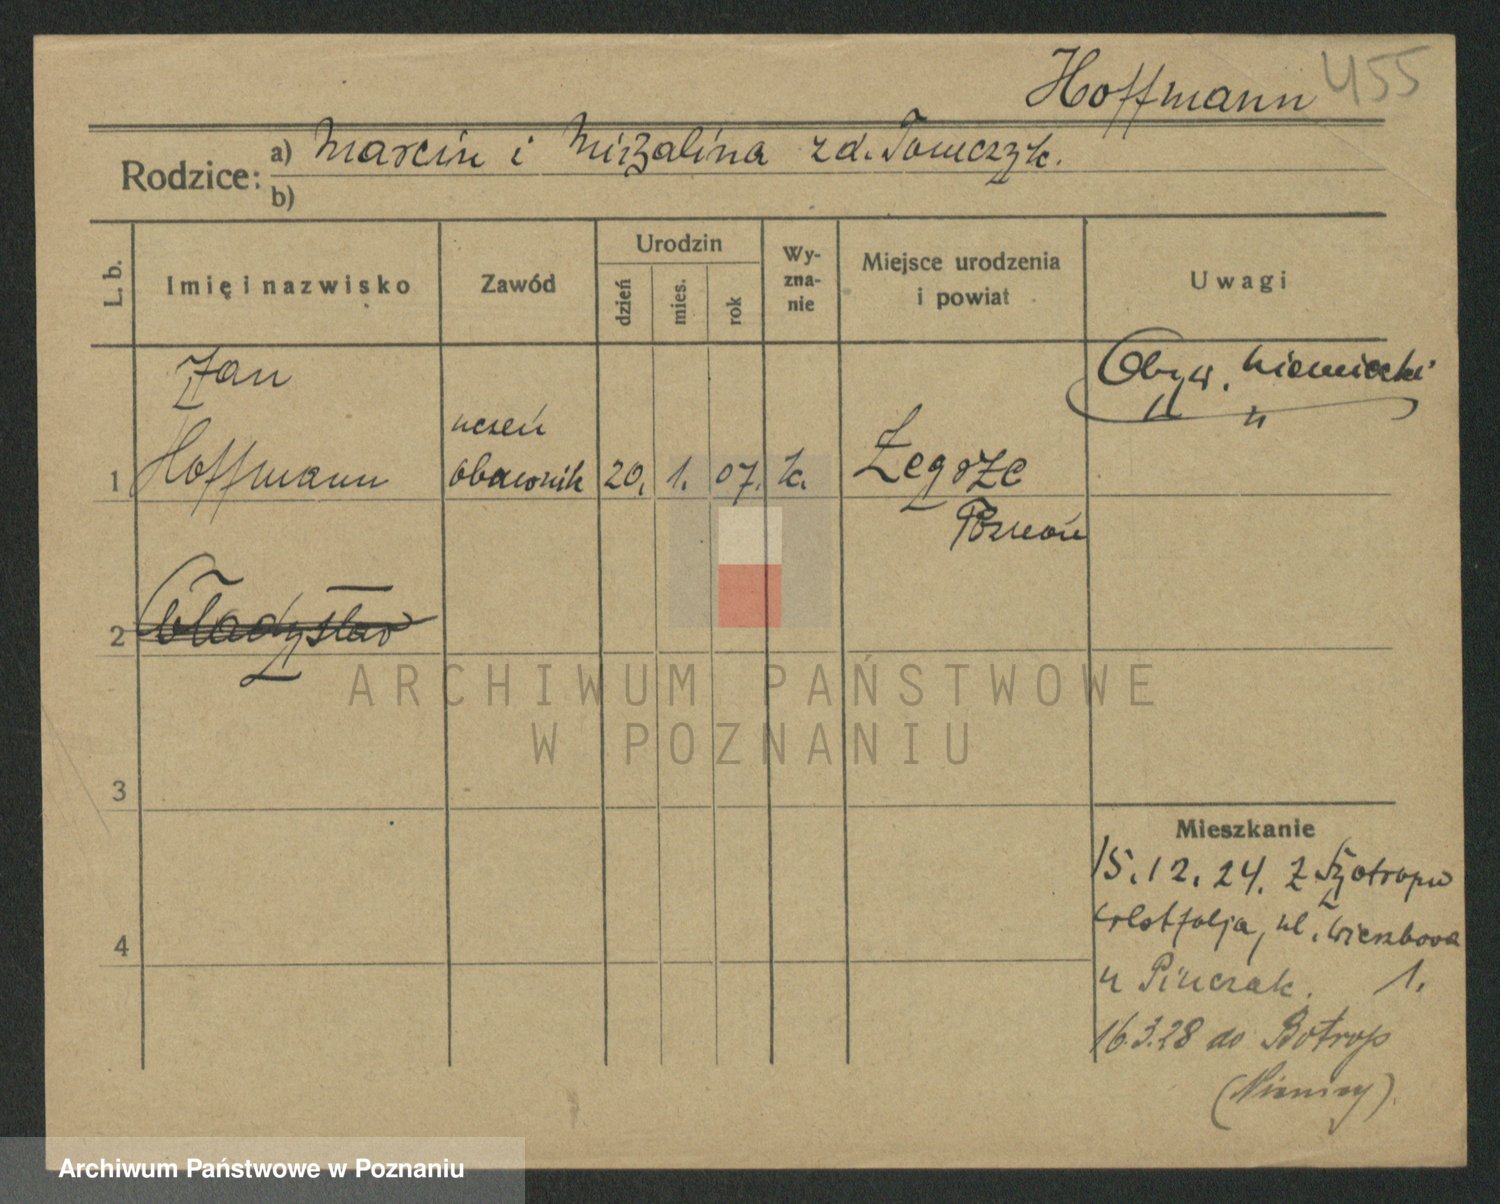 Hoffmann 455
Rodzice: a) Marcin i Michalina zd. Tomczyk.
b)
L. b.
Imię i nazwisko
Zawód
Urodzin
dzień
mies.
rok
Wy-
zna-
nie
Miejsce urodzenia
i powiat
Uwagi
Jan
Obyw. niemiecki
uczeń
1 Hoffmann
20. 1. 07. k.
Zegrze
Poznań
2 Władysław
ARCHIWUM PAŃSTWOWE
W POZNANIU
3
Mieszkanie
15.12.24. z
ul.
4
u Pinczak. 1.
16.3.28 do Botrop
(Niemcy).
Archiwum Państwowe w Poznaniu